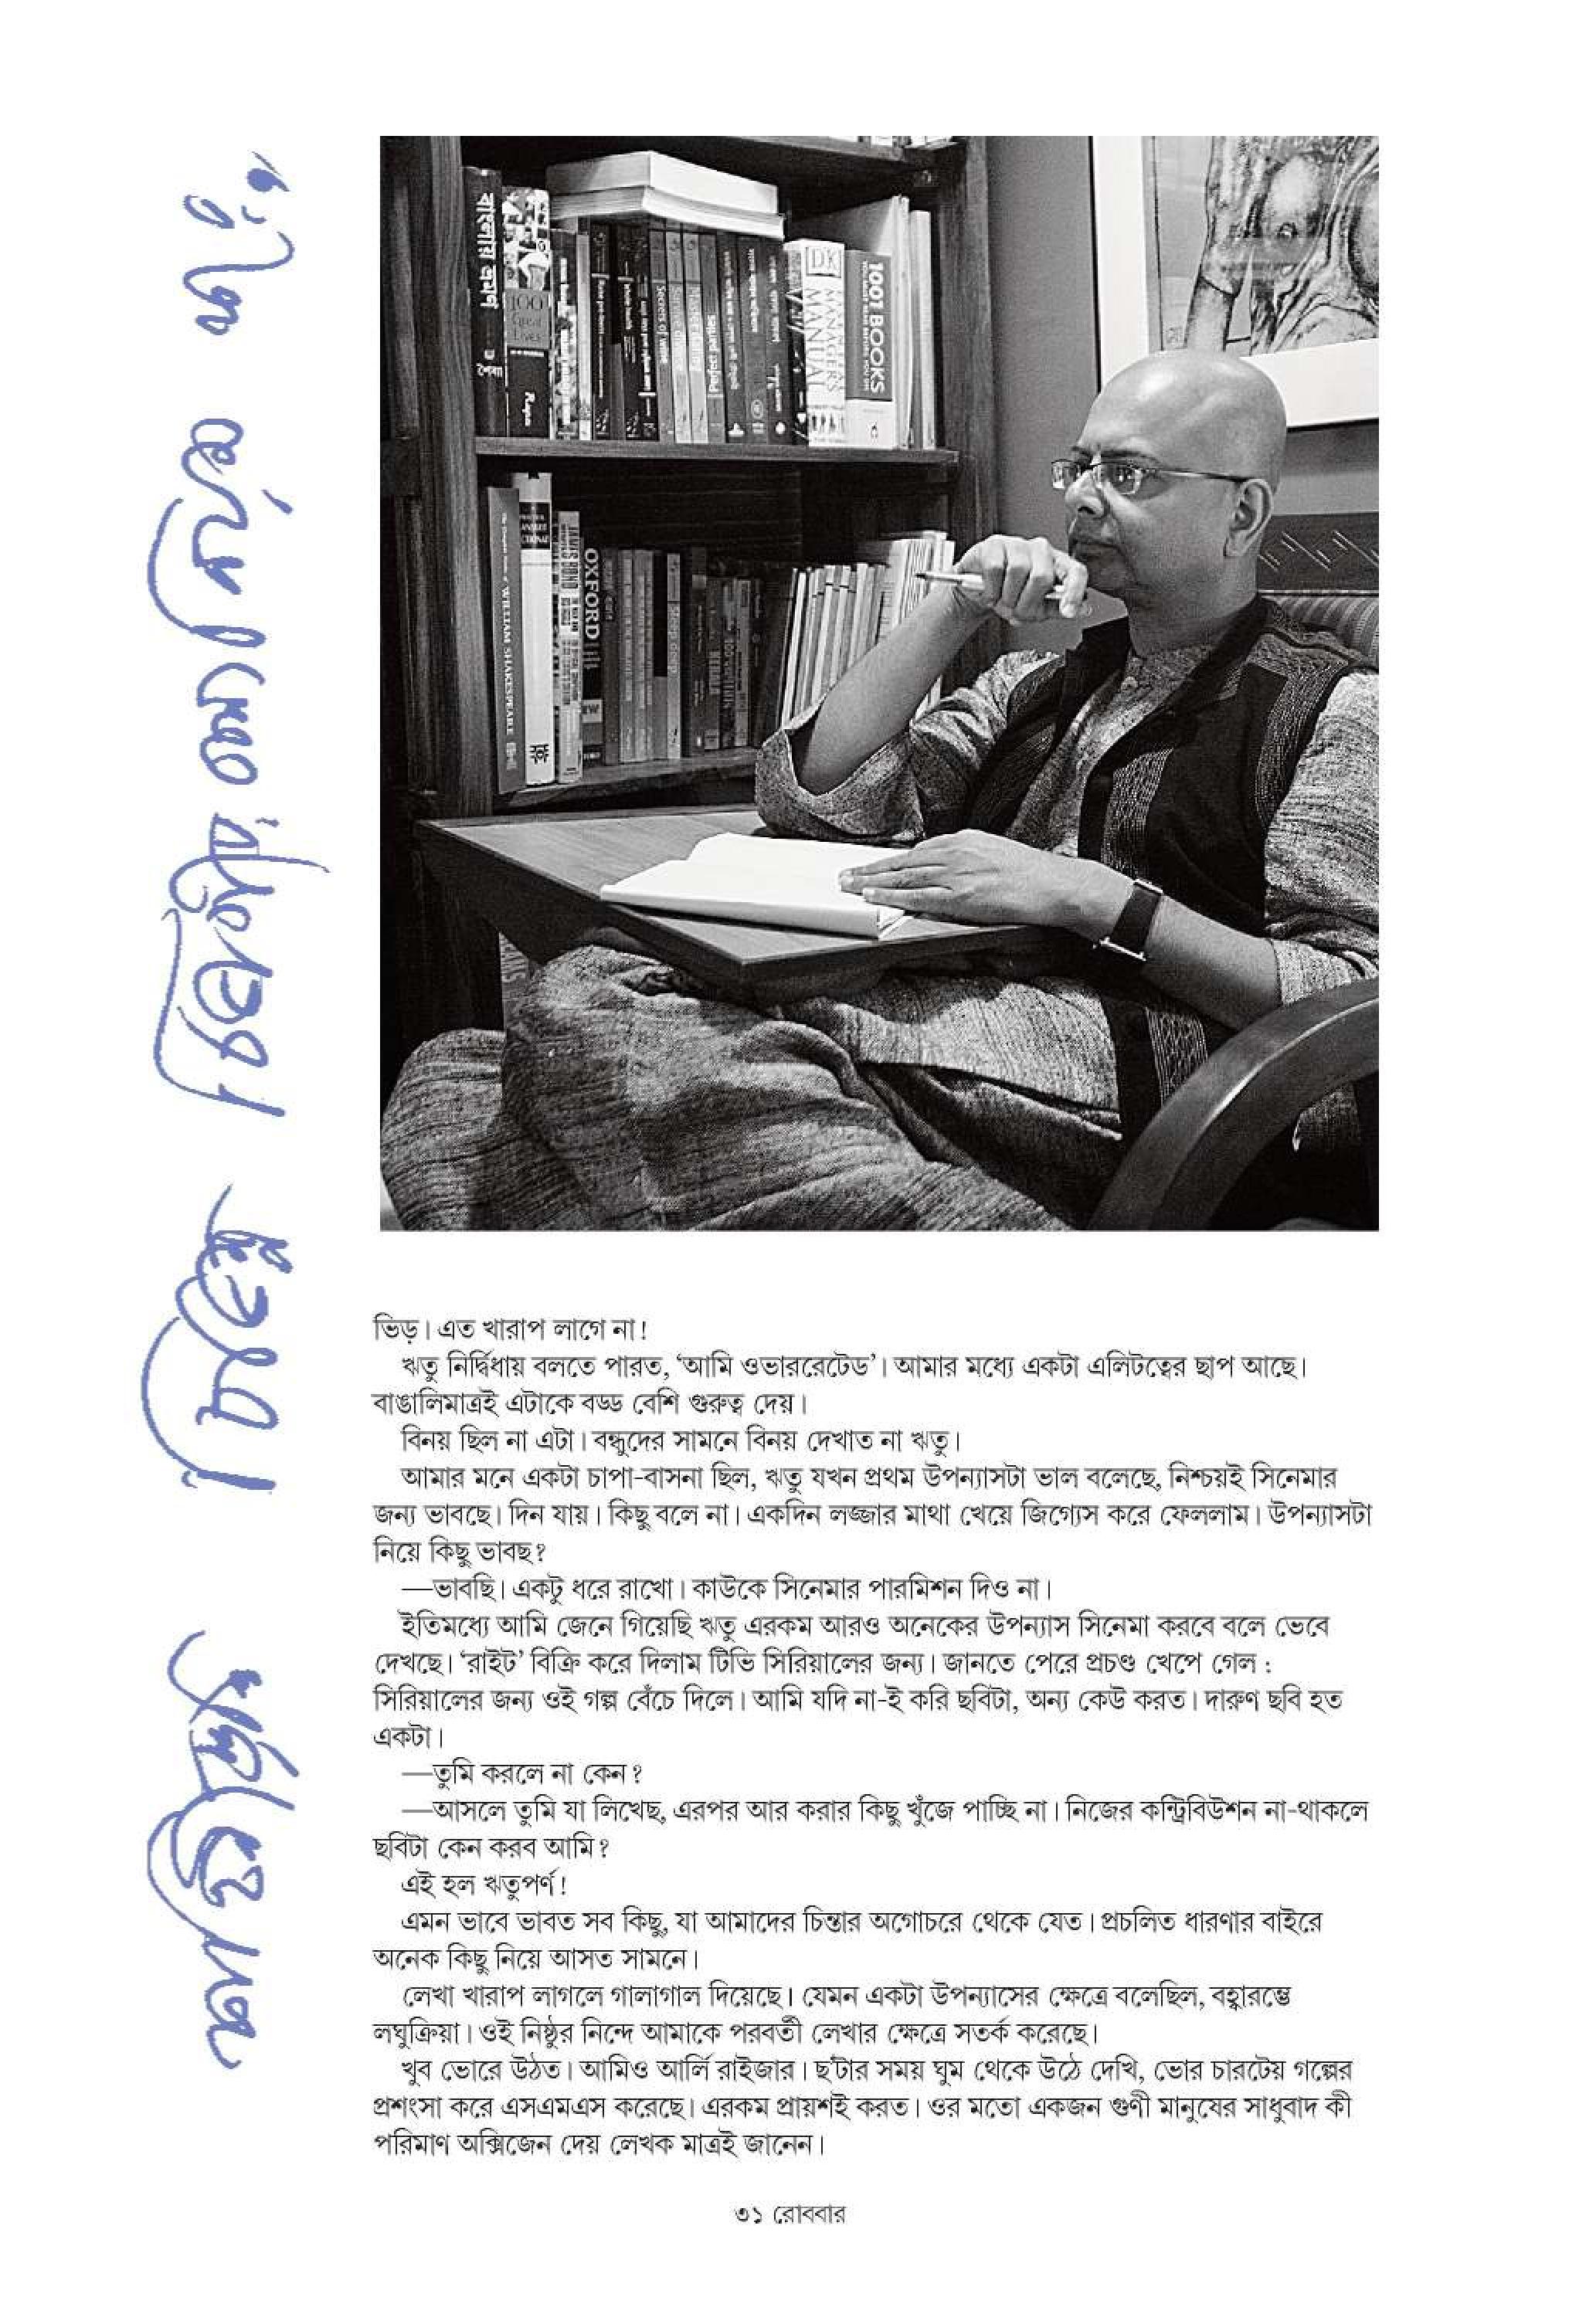 বাংলায় ভ্রমণ
শৈব্যা
100
Great
Lives
Rupa
Secrets of Wine
Perfect parties
DK
MANAGER'S
MANUAL
1001 BOOKS
YOU MUST READ BEFORE YOU DIE
WILLIAM SHAKESPEARE
OXFORD
KERALA
ভিড়। এত খারাপ লাগে না!
ঋতু নির্দ্বিধায় বলতে পারত, ‘আমি ওভাররেটেড’। আমার মধ্যে একটা এলিটত্বের ছাপ আছে।
বাঙালিমাত্রই এটাকে বড্ড বেশি গুরুত্ব দেয়।
বিনয় ছিল না এটা। বন্ধুদের সামনে বিনয় দেখাত না ঋতু।
আমার মনে একটা চাপা-বাসনা ছিল, ঋতু যখন প্রথম উপন্যাসটা ভাল বলেছে, নিশ্চয়ই সিনেমার
জন্য ভাবছে। দিন যায়। কিছু বলে না। একদিন লজ্জার মাথা খেয়ে জিগ্যেস করে ফেললাম। উপন্যাসটা
নিয়ে কিছু ভাবছ?
—ভাবছি। একটু ধরে রাখো। কাউকে সিনেমার পারমিশন দিও না।
ইতিমধ্যে আমি জেনে গিয়েছি ঋতু এরকম আরও অনেকের উপন্যাস সিনেমা করবে বলে ভেবে
দেখছে। ‘রাইট’ বিক্রি করে দিলাম টিভি সিরিয়ালের জন্য। জানতে পেরে প্রচণ্ড খেপে গেল :
সিরিয়ালের জন্য ওই গল্প বেঁচে দিলে। আমি যদি না-ই করি ছবিটা, অন্য কেউ করত। দারুণ ছবি হত
একটা।
—তুমি করলে না কেন?
—আসলে তুমি যা লিখেছ, এরপর আর করার কিছু খুঁজে পাচ্ছি না। নিজের কন্ট্রিবিউশন না-থাকলে
ছবিটা কেন করব আমি?
এই হল ঋতুপর্ণ!
এমন ভাবে ভাবত সব কিছু, যা আমাদের চিন্তার অগোচরে থেকে যেত। প্রচলিত ধারণার বাইরে
অনেক কিছু নিয়ে আসত সামনে।
লেখা খারাপ লাগলে গালাগাল দিয়েছে। যেমন একটা উপন্যাসের ক্ষেত্রে বলেছিল, বহ্বারম্ভে
লঘুক্রিয়া। ওই নিষ্ঠুর নিন্দে আমাকে পরবর্তী লেখার ক্ষেত্রে সতর্ক করেছে।
খুব ভোরে উঠত। আমিও আর্লি রাইজার। ছ'টার সময় ঘুম থেকে উঠে দেখি, ভোর চারটেয় গল্পের
প্রশংসা করে এসএমএস করেছে। এরকম প্রায়শই করত। ওর মতো একজন গুণী মানুষের সাধুবাদ কী
পরিমাণ অক্সিজেন দেয় লেখক মাত্রই জানেন।
৩১ রোববার